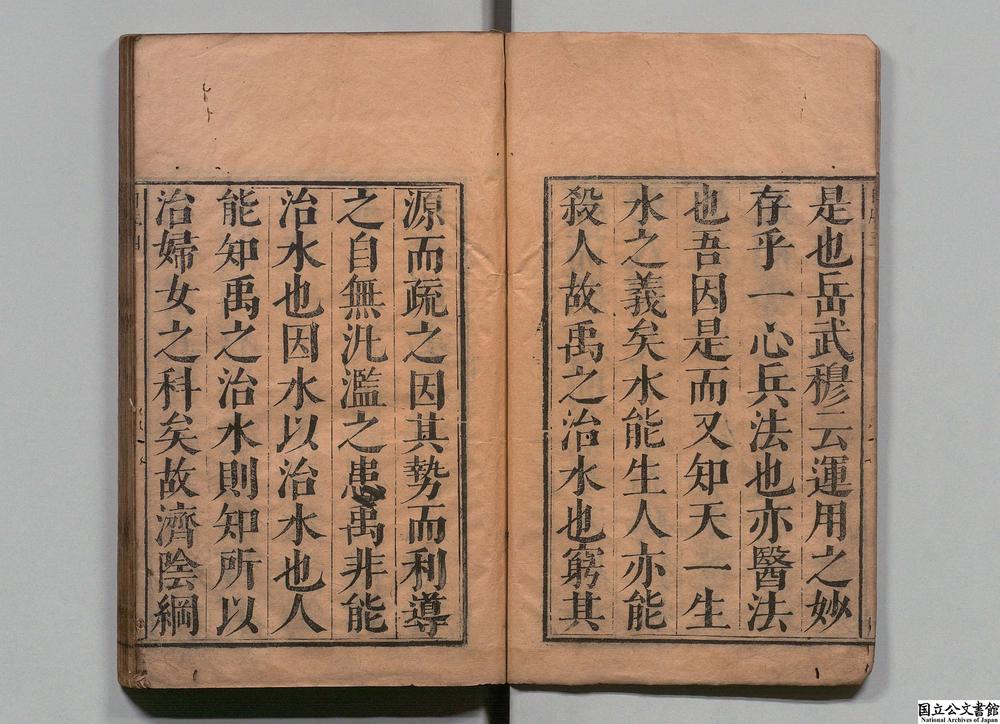 是也岳武穆云運用之妙
存乎一心兵法也亦醫法
也吾因是而又知天一生
水之義矣水能生人亦能
殺人故禹之治水也窮其
源而疏之因其勢而利導
之自無汎濫之患禹非能
治水也因水以治水也人
能知禹之治水則知所以
治婦女之科矣故濟陰綱
国立公文書館
National Archives of Japan